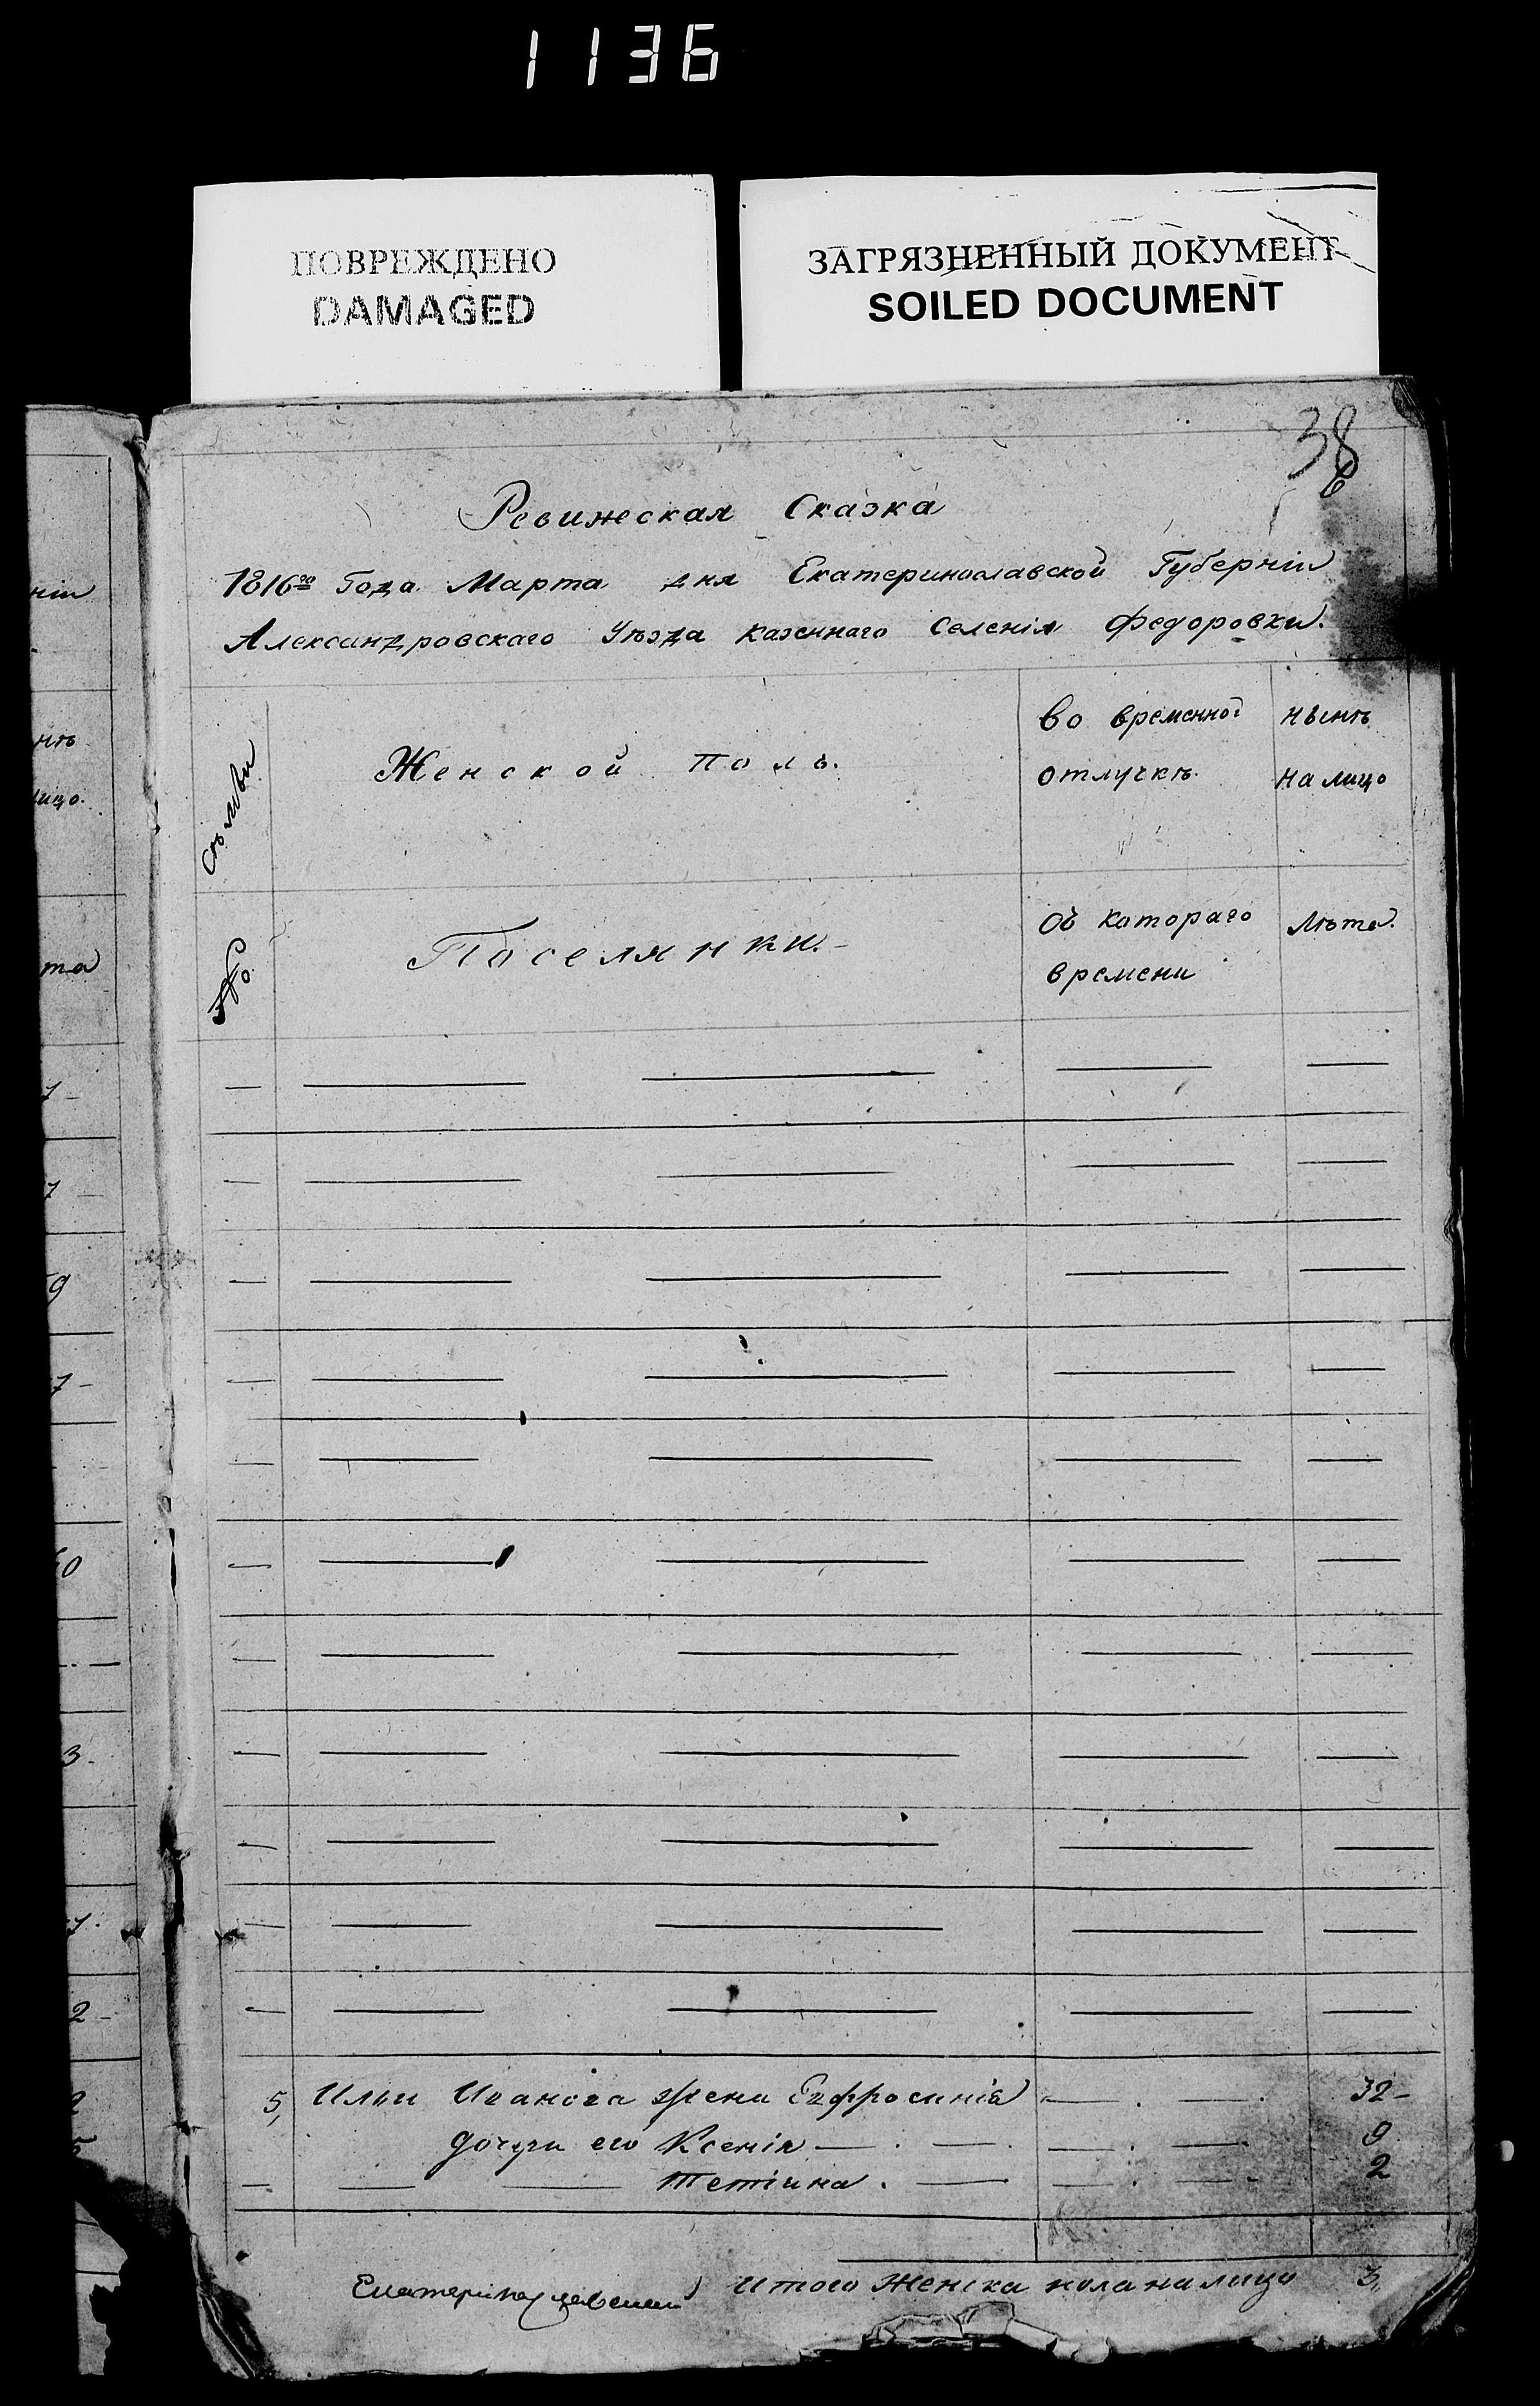 1136
ПОВРЕЖДЕНО
DAMAGED
ЗАГРЯЗНЕННЫЙ ДОКУМЕНТ
SOILED DOCUMENT
38
Ревижская Сказка
1816го Года Марта дня Екатеринославской Губерніи
Александровскаго Уѣзда казеннаго Селенія Федоровки.
Женской Полъ.
во временной отлучкѣ.
нынѣ на лицо
№
Поселянки.
Об котораго времени
Лѣта.
5, Ильи Иванова жена Евфросинія 32
дочери его Ксенія 9
Тетіяна 2
Итого Женска пола налицо 3,